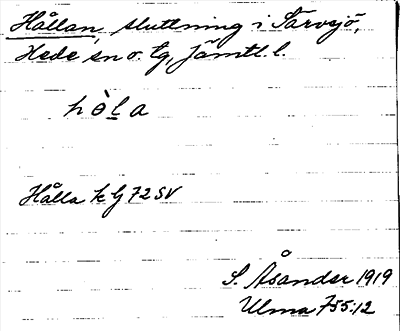 Hållan, sluttning i Särvsjö,
Hede sn o. tg, Jämtl. l.
hòla
Hålla k G 72 SV
S. Åsander 1919
Ulma 755:12